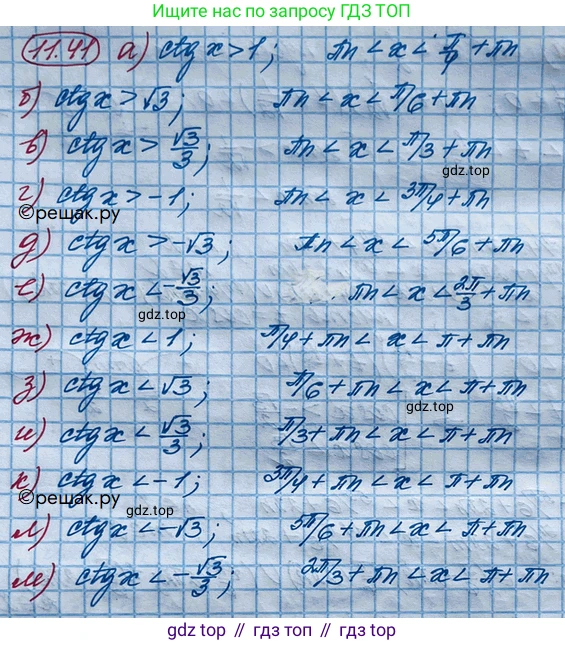 Ищите нас по запросу ГДЗ ТОП
11.41 а) ctg x > 1; πn < x < π/4 + πn
б) ctg x > √3; πn < x < π/6 + πn
в) ctg x > √3/3; πn < x < π/3 + πn
г) ctg x > -1; πn < x < 3π/4 + πn
©решак.ру
gdz.top
д) ctg x > -√3; πn < x < 5π/6 + πn
е) ctg x < -√3/3; πn < x < 2π/3 + πn
gdz.top
ж) ctg x < 1; π/4 + πn < x < π + πn
з) ctg x < √3; π/6 + πn < x < π + πn
gdz.top
и) ctg x < √3/3; π/3 + πn < x < π + πn
к) ctg x < -1; 3π/4 + πn < x < π + πn
©решак.ру
л) ctg x < -√3; 5π/6 + πn < x < π + πn
м) ctg x < -√3/3; 2π/3 + πn < x < π + πn
gdz.top // гдз топ // gdz top